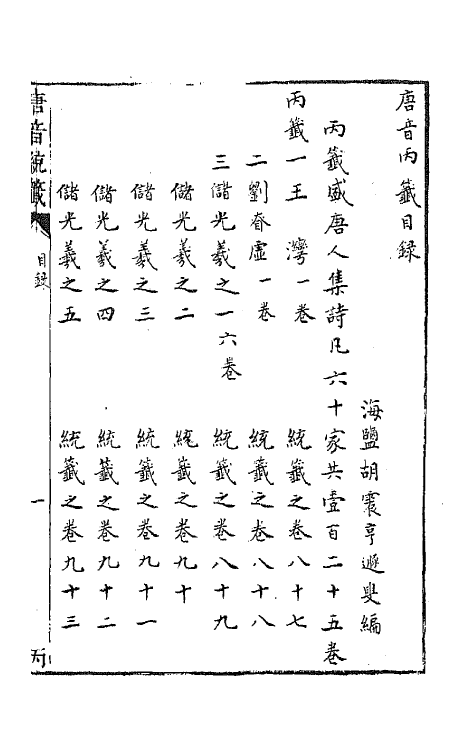 唐音丙籤目録
海鹽胡震亨遯叟編
丙籤盛唐人集詩凡六十家共壹百二十五卷
丙籤一王灣一卷 統籤之卷八十七
二劉眘虛一卷 統籤之卷八十八
三儲光羲之一六卷 統籤之卷八十九
儲光羲之二 統籤之卷九十
儲光羲之三 統籤之卷九十一
儲光羲之四 統籤之卷九十二
儲光羲之五 統籤之卷九十三
唐音統籤 目録 一 丙